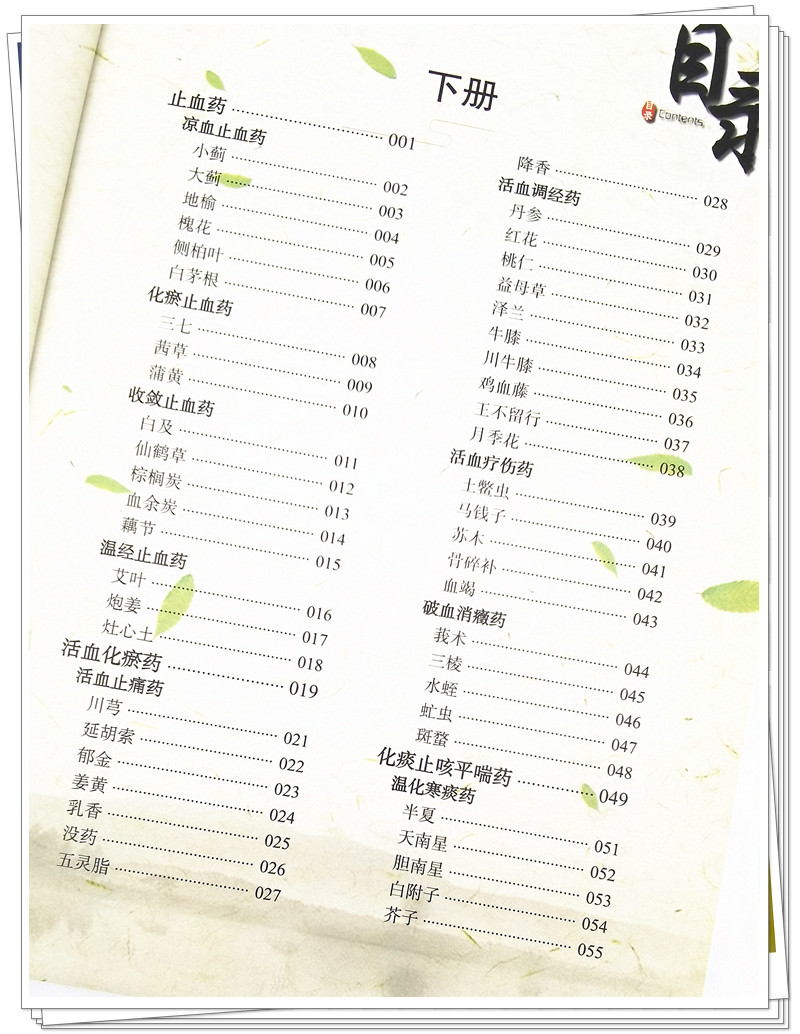 目录
目录 Contents
下册
止血药 001
凉血止血药
小蓟 002
大蓟 003
地榆 004
槐花 005
侧柏叶 006
白茅根 007
化瘀止血药
三七 008
茜草 009
蒲黄 010
收敛止血药
白及 011
仙鹤草 012
棕榈炭 013
血余炭 014
藕节 015
温经止血药
艾叶 016
炮姜 017
灶心土 018
活血化瘀药 019
活血止痛药
川芎 021
延胡索 022
郁金 023
姜黄 024
乳香 025
没药 026
五灵脂 027
降香 028
活血调经药
丹参 029
红花 030
桃仁 031
益母草 032
泽兰 033
牛膝 034
川牛膝 035
鸡血藤 036
王不留行 037
月季花 038
活血疗伤药
土鳖虫 039
马钱子 040
苏木 041
骨碎补 042
血竭 043
破血消癥药
莪术 044
三棱 045
水蛭 046
虻虫 047
斑蝥 048
化痰止咳平喘药 049
温化寒痰药
半夏 051
天南星 052
胆南星 053
白附子 054
芥子 055